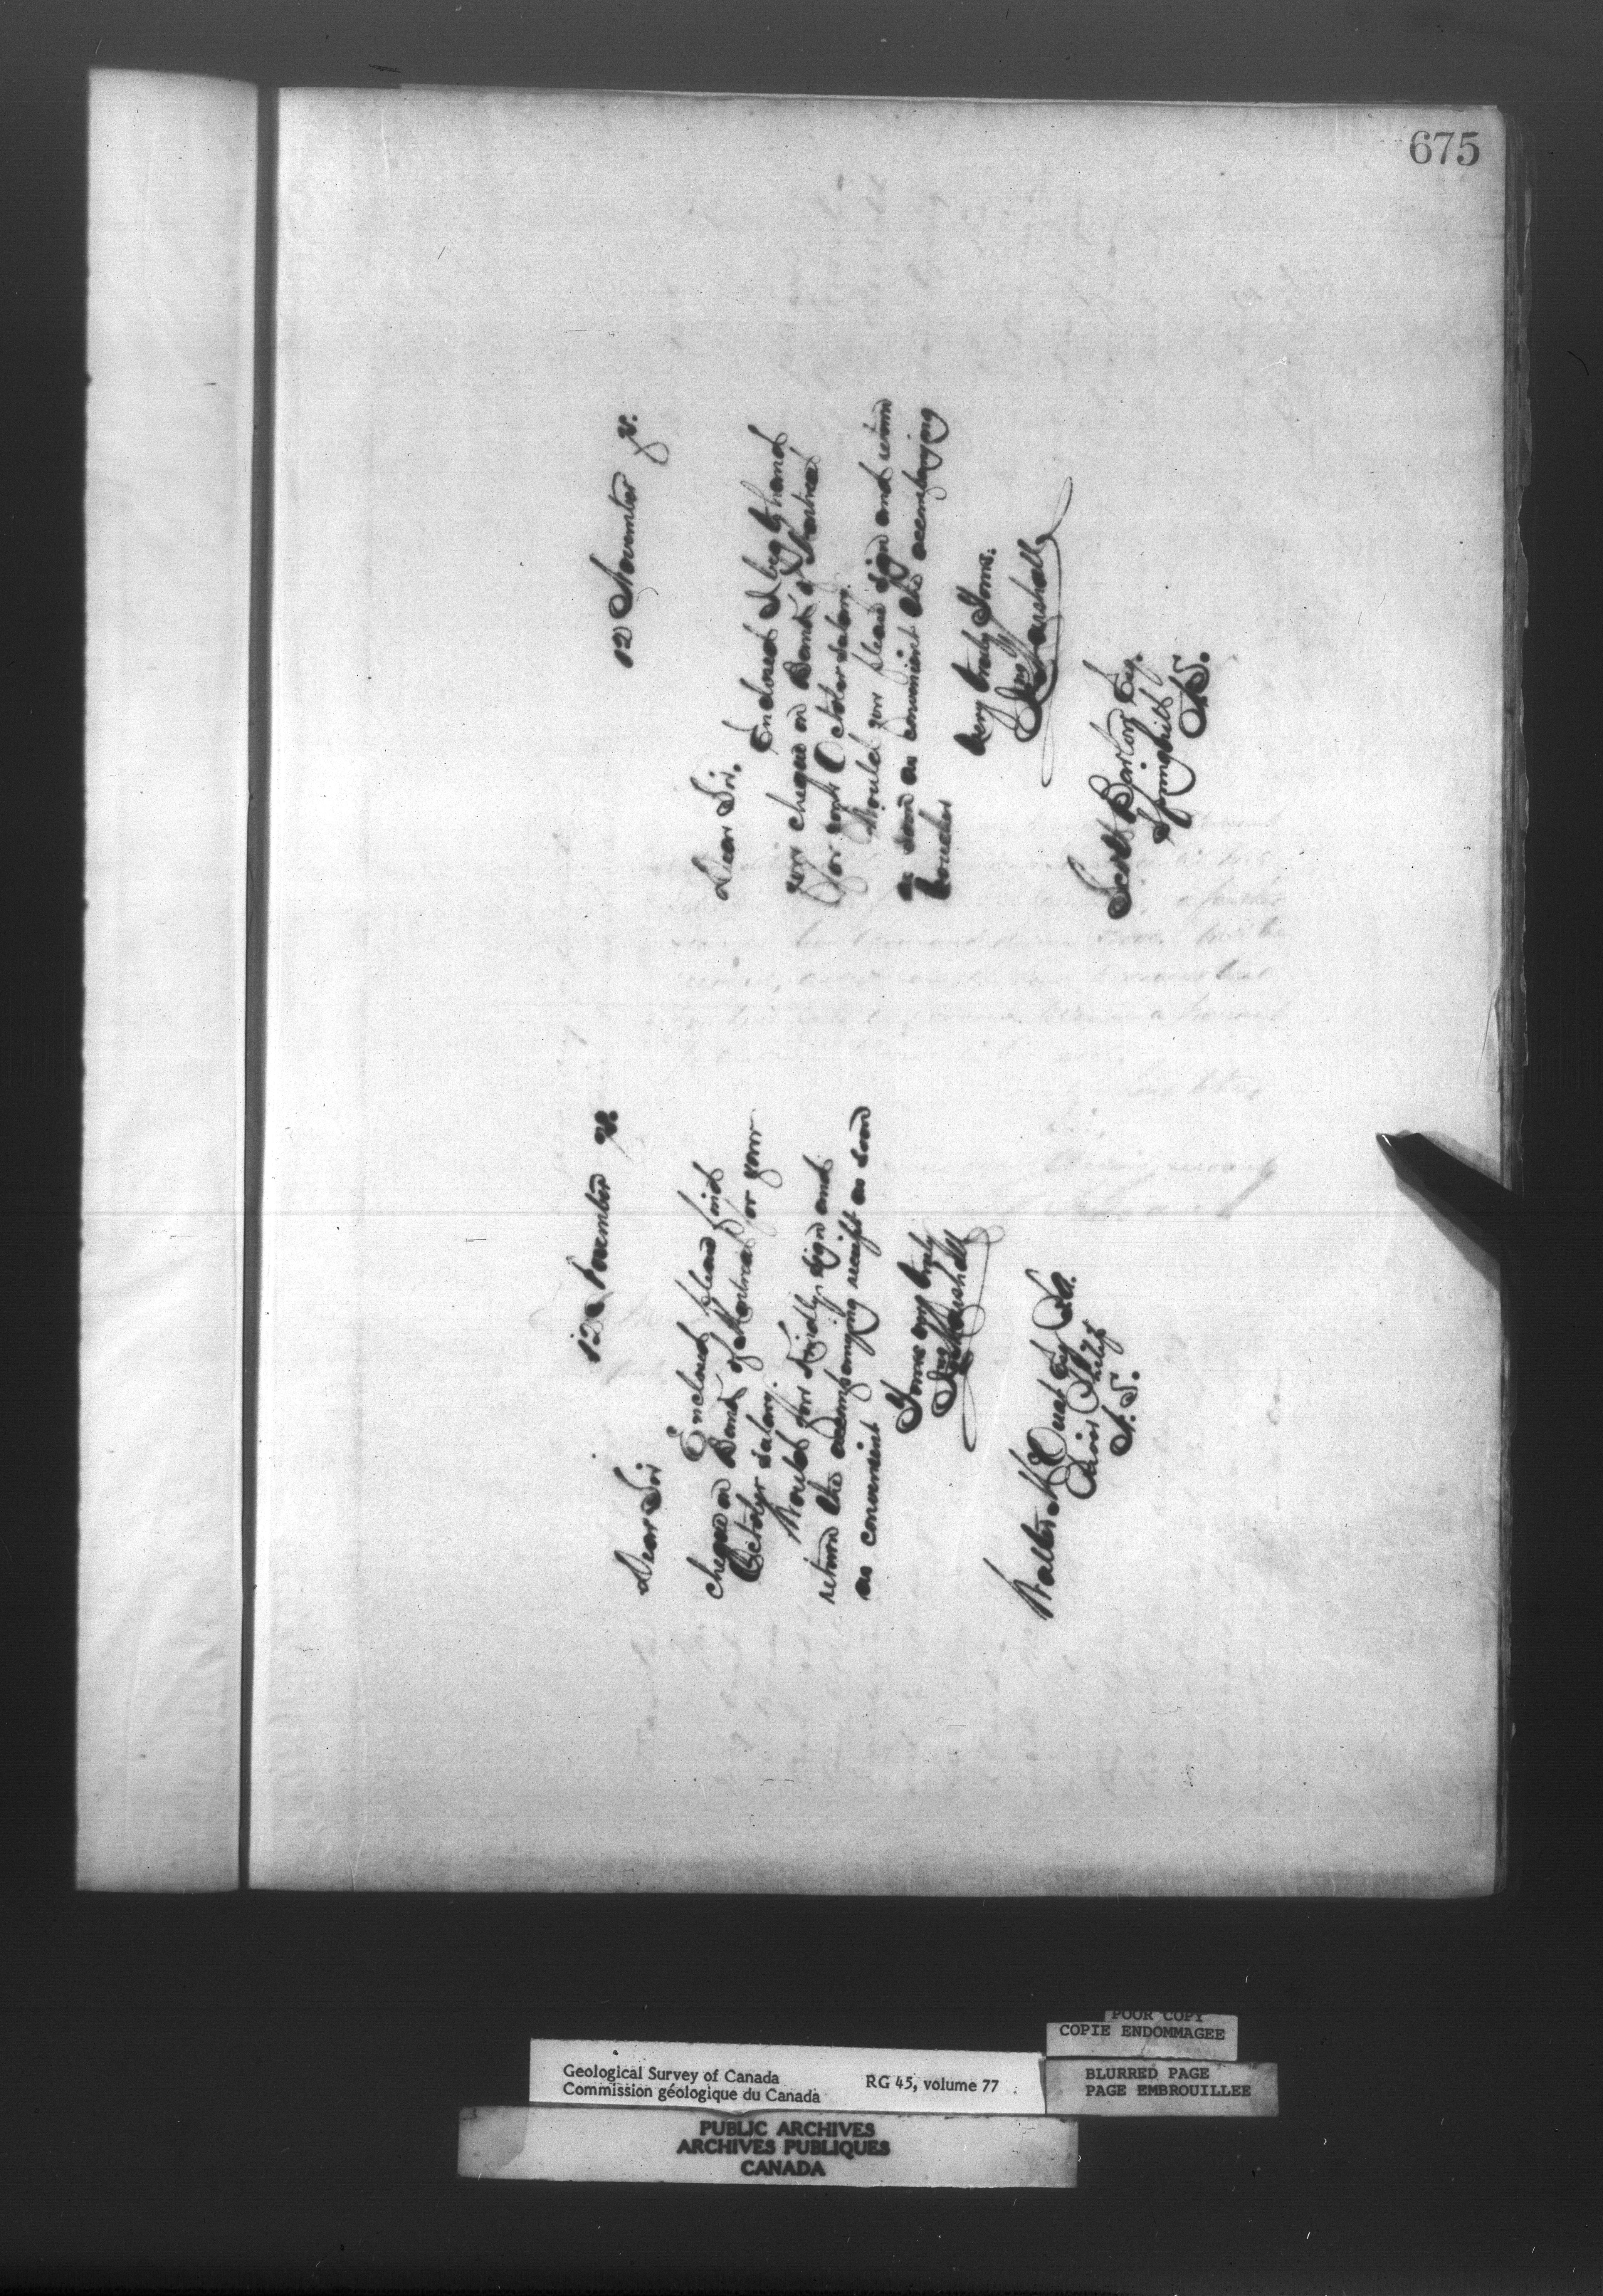 675
12 November
Dear Sir
Enclosed please find
cheque on Bank of Montreal for your
October salary.
Would you kindly sign and
return the accompanying receipt as soon
as convenient
Yours very truly
Jno Marshall
Walter McOuat Esq
N.S.
12 November
Dear Sir.
Enclosed I beg to hand
you cheque on Bank of Montreal
for your October salary.
Would you please sign and return
as soon as convenient the accompanying
voucher
Very truly Yours.
Jno Marshall
Scott Barlow Esq.
Springhill
N.S.
POOR COPY
COPIE ENDOMMAGEE
Geological Survey of Canada
Commission géologique du Canada
RG 45, volume 77
BLURRED PAGE
PAGE EMBROUILLEE
PUBLIC ARCHIVES
ARCHIVES PUBLIQUES
CANADA